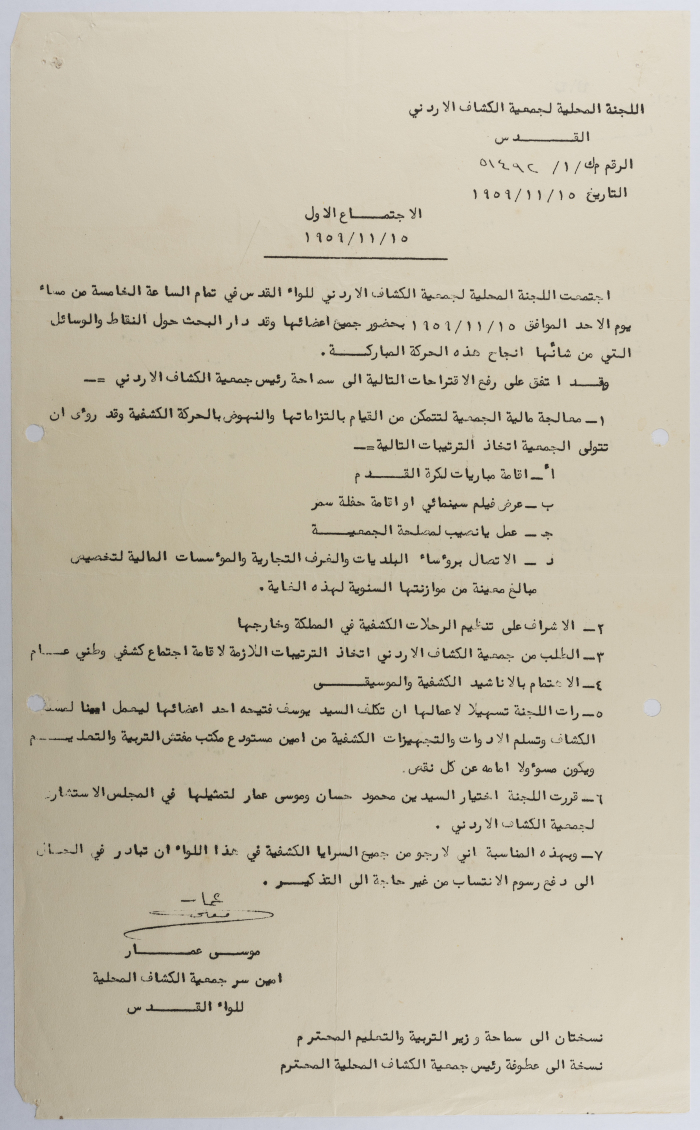 اللجنة المحلية لجمعية الكشاف الاردني
القـــدس
الرقم م ك/١/ ٥١٤٩٢
التاريخ ١٩٥٩/١١/١٥
الاجتمـــاع الاول
١٩٥٩/١١/١٥
اجتمعت اللجنة المحلية لجمعية الكشاف الاردني للواء القدس في تمام الساعة الخامسة من مساء
يوم الاحد الموافق ١٩٥٩/١١/١٥ بحضور جميع اعضائها وقد دار البحث حول النقاط والوسائل
التي من شائها انجاح هذه الحركة المباركـــة .
وقـــد اتفق على رفع الاقتراحات التالية الى سماحة رئيس جمعية الكشاف الاردني :ــ
١ــ معالجة مالية الجمعية لتتمكن من القيام بالتزاماتها والنهوض بالحركة الكشفية وقد روءى ان
تتولى الجمعية اتخاذ الترتيبات التالية :ــ
أ ــ اقامة مباريات لكرة القـــدم
ب ــ عرض فيلم سينمائي او اقامة حفلة سمر
جـ ــ عمل يانصيب لمصلحة الجمعيـــة
د ــ الاتصال بروءساء البلديات والغرف التجارية والموءسسات المالية لتخصيص
مبالغ معينة من موازنتها السنوية لهذه الغاية .
٢ــ الاشراف على تنظيم الرحلات الكشفية في المملكة وخارجها
٣ــ الطلب من جمعية الكشاف الاردني اتخاذ الترتيبات اللازمة لاقامة اجتماع كشفي وطني عـــام
٤ــ الاهتمام بالاناشيد الكشفية والموسيقـــى
٥ــ رات اللجنة تسهيلا لاعمالها ان تكلف السيد يوسف فتيحه احد اعضائها ليعمل امينا
الكشاف وتسلم الادوات والتجهيزات الكشفية من امين مستودع مكتب مفتش التربية والتعليـــم
ويكون مسوءولا امامه عن كل نقص.
٦ــ قررت اللجنة اختيار السيدين محمود حسان وموسى عمار لتمثيلها في المجلس الاستشاري
لجمعية الكشاف الاردني .
٧ــ وبهذه المناسبة اني لارجو من جميع السرايا الكشفية في هذا اللواء ان تبادر في الحـــال
الى دفع رسوم الانتساب من غير حاجة الى التذكيـــر .
موســـى عمـــار
امين سر جمعية الكشاف المحلية
للواء القـــدس
نسختان الى سماحة وزير التربية والتعليم المحترم
نسخة الى عطوفة رئيس جمعية الكشاف المحلية المحترم